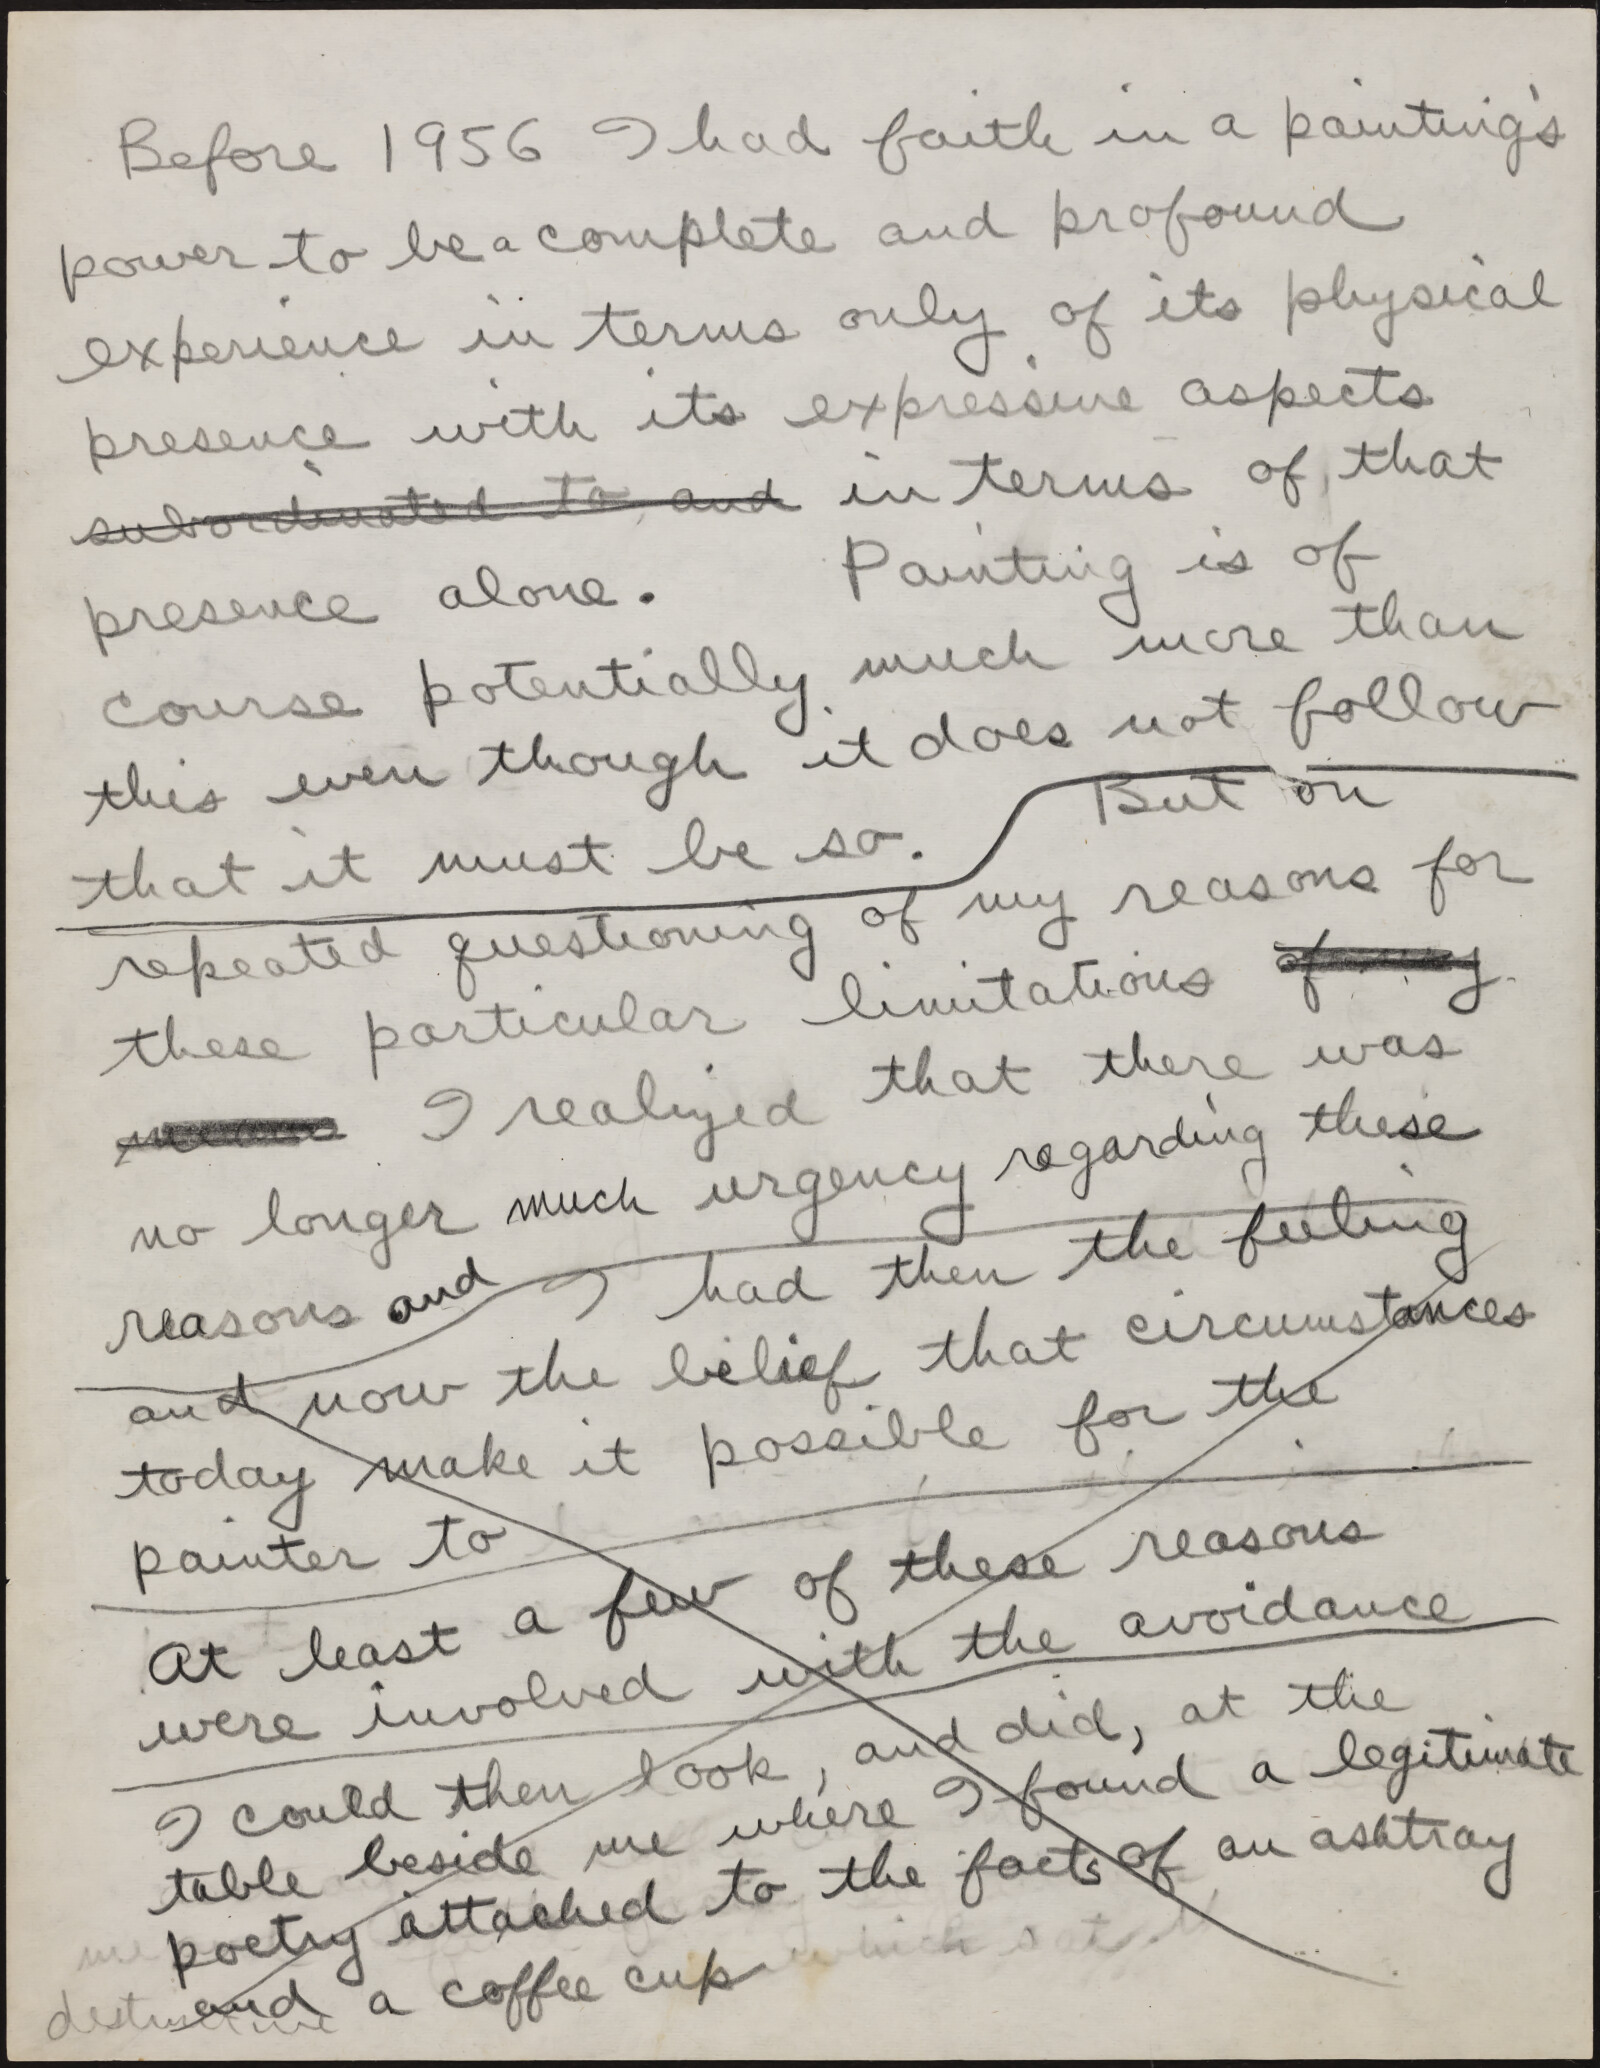 Before 1956 I had faith in a painting's
power to be a complete and profound
experience in terms only of its physical
presence with its expressive aspects
subordinated to and in terms of that
presence alone. Painting is of
course potentially much more than
this even though it does not follow
that it must be so. But on
repeated questioning of my reasons for
these particular limitations of my
means I realized that there was
no longer much urgency regarding these
reasons and I had then the feeling
and now the belief that circumstances
today make it possible for the
painter to
At least a few of these reasons
were involved with the avoidance
I could then look, and did, at the
table beside me where I found a legitimate
poetry attached to the facts of an ashtray
and a coffee cup